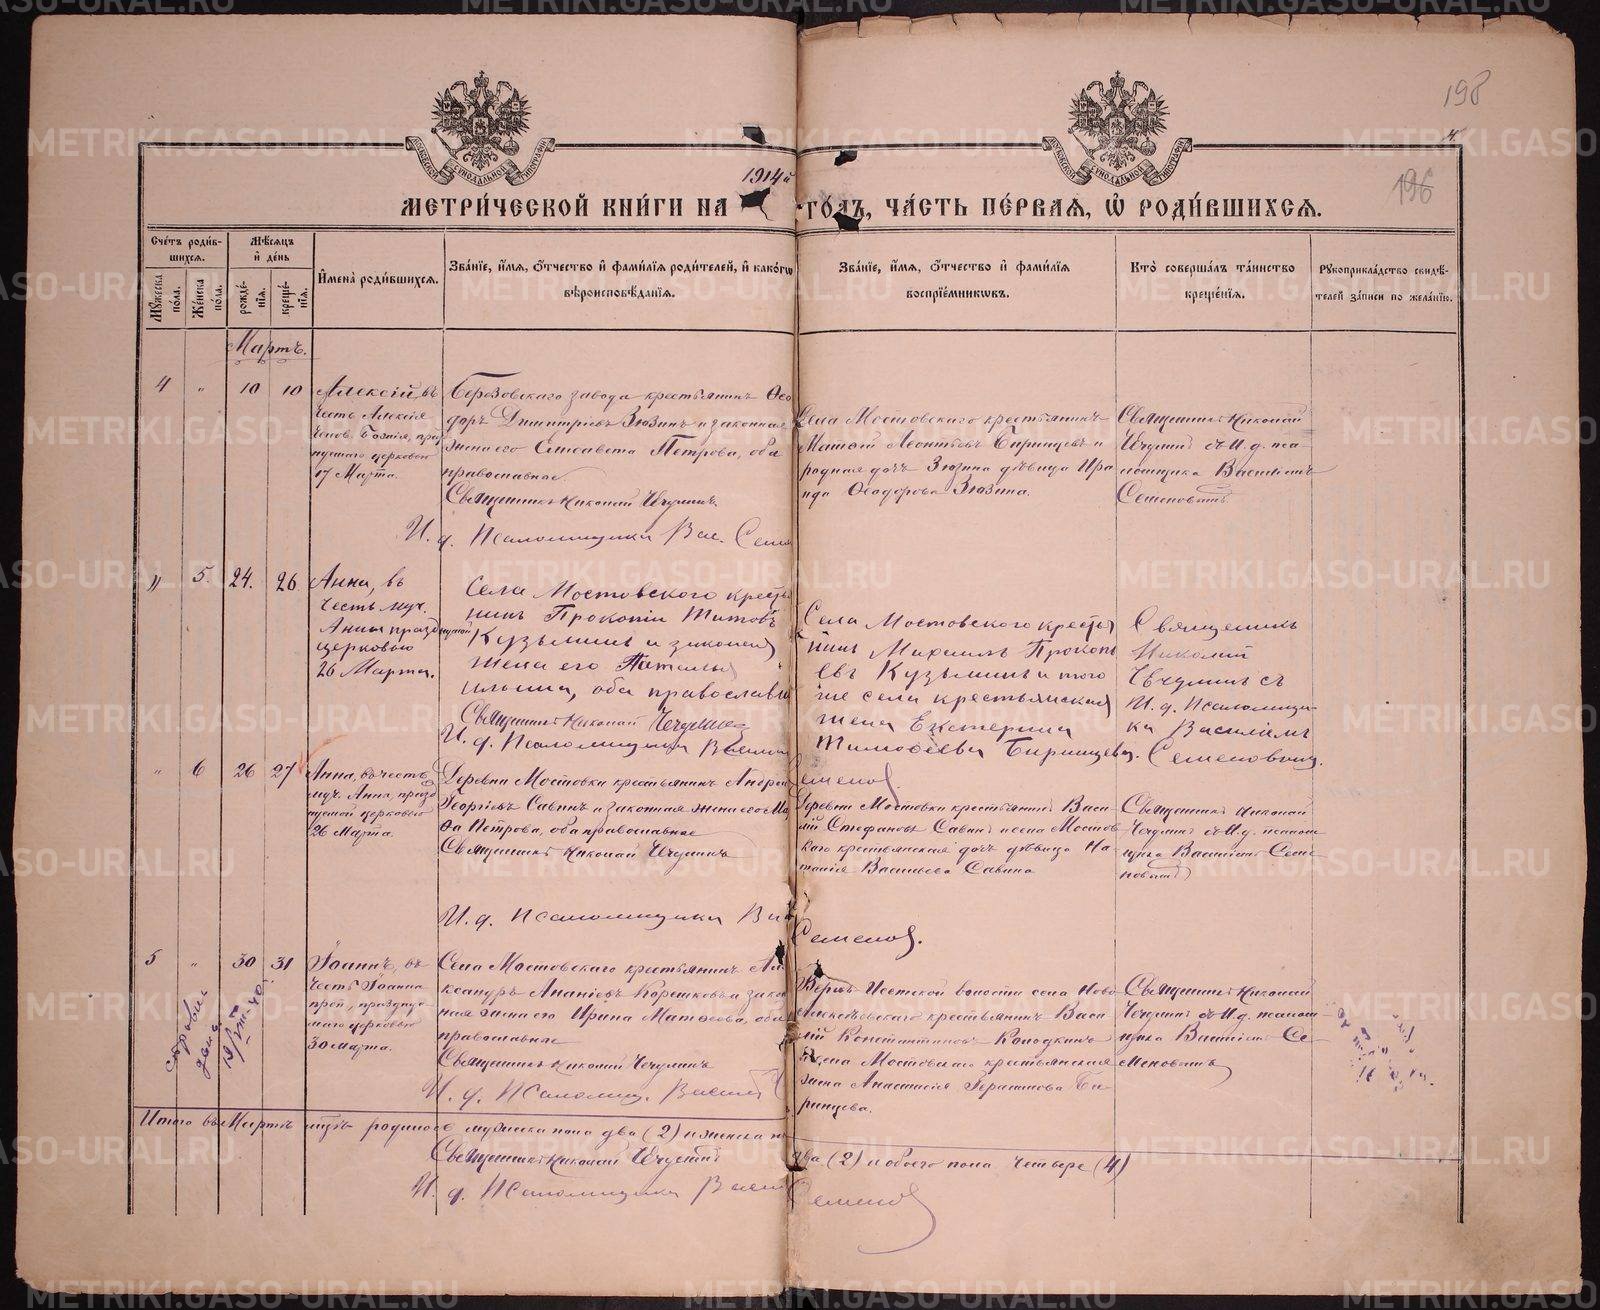 198
4
196
1914й
МЕТРИ́ЧЕСКОЙ КНИ́ГИ НА ГО́ДЪ, ЧА́СТЬ ПЕ́РВАЯ, Ѡ҆ РОДИ́ВШИХСЯ.
Сче́тъ роди́в-
шихся.
Мѣ́сяцъ
и҆ де́нь
И҆мена̀ роди́вшихся.
Зва́нїе, и҆́мя, ѻ҆́тчество и҆ фами́лїя роди́телей, и҆ како́гѡ
вѣроисповѣ́данїя.
Зва́нїе, и҆́мя, ѻ҆́тчество и҆ фами́лїя
воспрїе́мникѡвъ.
Кто̀ соверша́лъ та́инство
креще́нїя.
Рꙋкоприкла́дство свидѣ́-
телей за́писи по жела́нїю.
Мꙋ́жеска
по́ла.
Же́нска
по́ла.
рожде́-
нїя.
креще́-
нїя.
Мартъ.
4 " 10 10
Алексій, въ
честь Алексія
человѣ. Божія, праз
нуемаго церковью
17 Марта.
Березовскаго завода крестьянинъ Ѳео
доръ Димитріевъ Зюзинъ и законная
жена его Елисавета Петрова, оба
православные
Священникъ Николай Чечулинъ
И. д. Псаломщика Вас. Семе
Села Мостовскаго крестьянинъ
Матѳій Леонтьевъ Бирищевъ и
родная дочь Зюзина дѣвица Ира
ида Ѳеодорова Зюзина.
Священникъ Николай
Чечулинъ съ И. д. псал
ломщика Василіемъ
Семеновымъ.
" 5. 24. 26
Анна, въ
честь муч.
Анны празд нуемой
церковью
26 Марта.
Села Мостовского кресть
нинъ Прокопій Титовъ
Кузьминъ и законная
жена его Наталья
Ильина, оба православн
Священникъ Николай Чечулинъ
И. д. Псаломщика Васили
Семенов
Села Мостовского кресть
нинъ Михаилъ Прокопь
евъ Кузьминъ и того
же села крестьянская
жена Екатерина
Тимофеева Бирищева.
Священникъ
Николай
Чечулинъ съ
И. д. Псаломщи
ка Василіемъ
Семеновымъ.
" 6 26 27
Анна, въ честь
муч. Анны, празд
нуемой церковью
26 Марта.
Деревни Мостовки крестьянинъ Андрей
Георгіевъ Савинъ и законная жена его Ма
ѳа Петрова, оба православные
Священникъ Николай Чечулинъ
И. д. Псаломщика Ва
Семенов.
Деревни Мостовки крестьянинъ Васи
лій Стефановъ Савинъ и села Мостов
скаго крестьянская дочь дѣвица На
талія Васильева Савина
Священникъ Николай
Чечулинъ съ И. д. псалом
щика Василіемъ Семе
новымъ
5 " 30 31
Іоаннъ, въ
честь Іоанна
преп., праздну
маго церковью
30 марта.
Села Мостовскаго крестьянинъ Ал
ксандръ Ананіевъ Корешковъ и закон
ная жена его Ирина Матѳеева, оба
православные
Священникъ Николай Чечулинъ
И. д. Псаломщ. Василій
Верхъ Исетской волости села Ново
Алексѣевскаго крестьянинъ Васи
лій Константиновъ Колодкинъ
и села Мостовскаго крестьянская
жена Анастасія Герасимова Би
рищева.
Священникъ Николай
Чечулинъ съ И. д. псалом
щика Василіемъ Се
меновымъ
Итого въ Мартѣ мцѣ родилось мужеска пола два (2) и женска по
два (2) и обоего пола четыре (4)
Священникъ Николай Чечулинъ
И. д. Псаломщика Васил Семенов